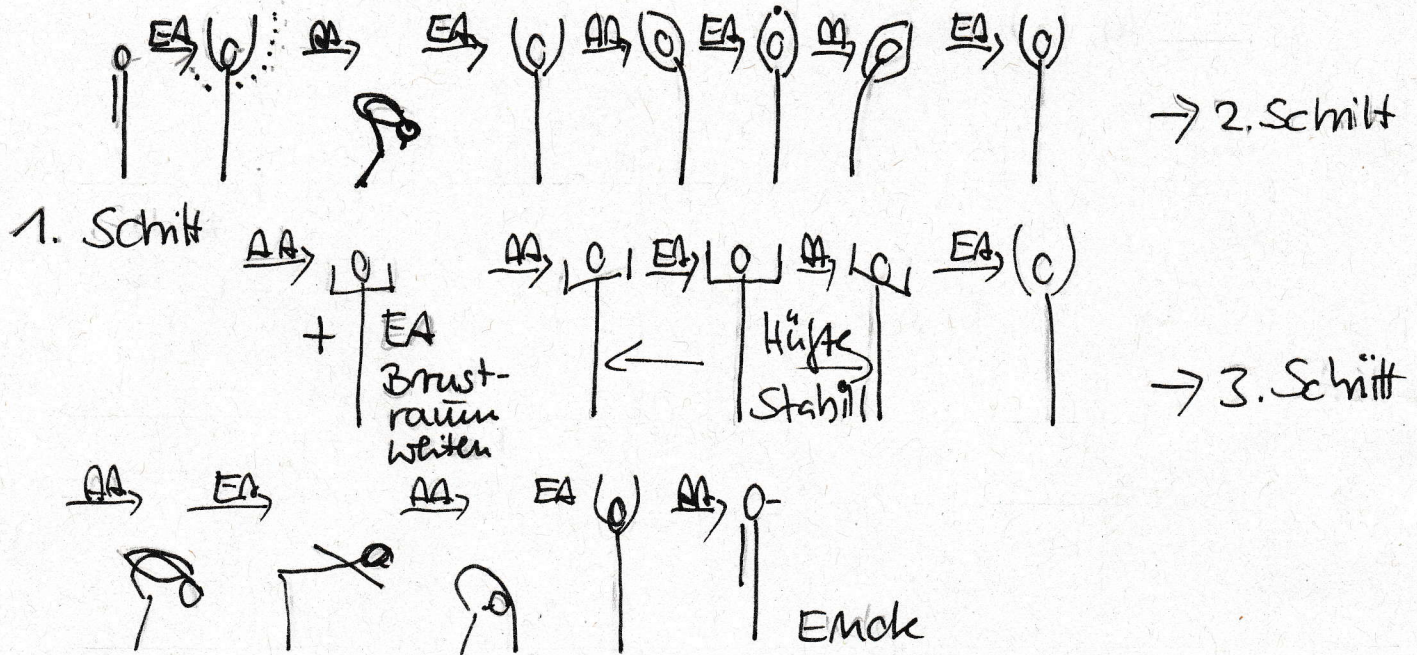 EA AA EA AA EA AA EA
→ 2. Schritt
1. Schritt
AA AA EA AA EA
+ EA
Brust-
raum
weiten
Hüfte
Stabill
→ 3. Schritt
AA EA AA EA AA
Ende